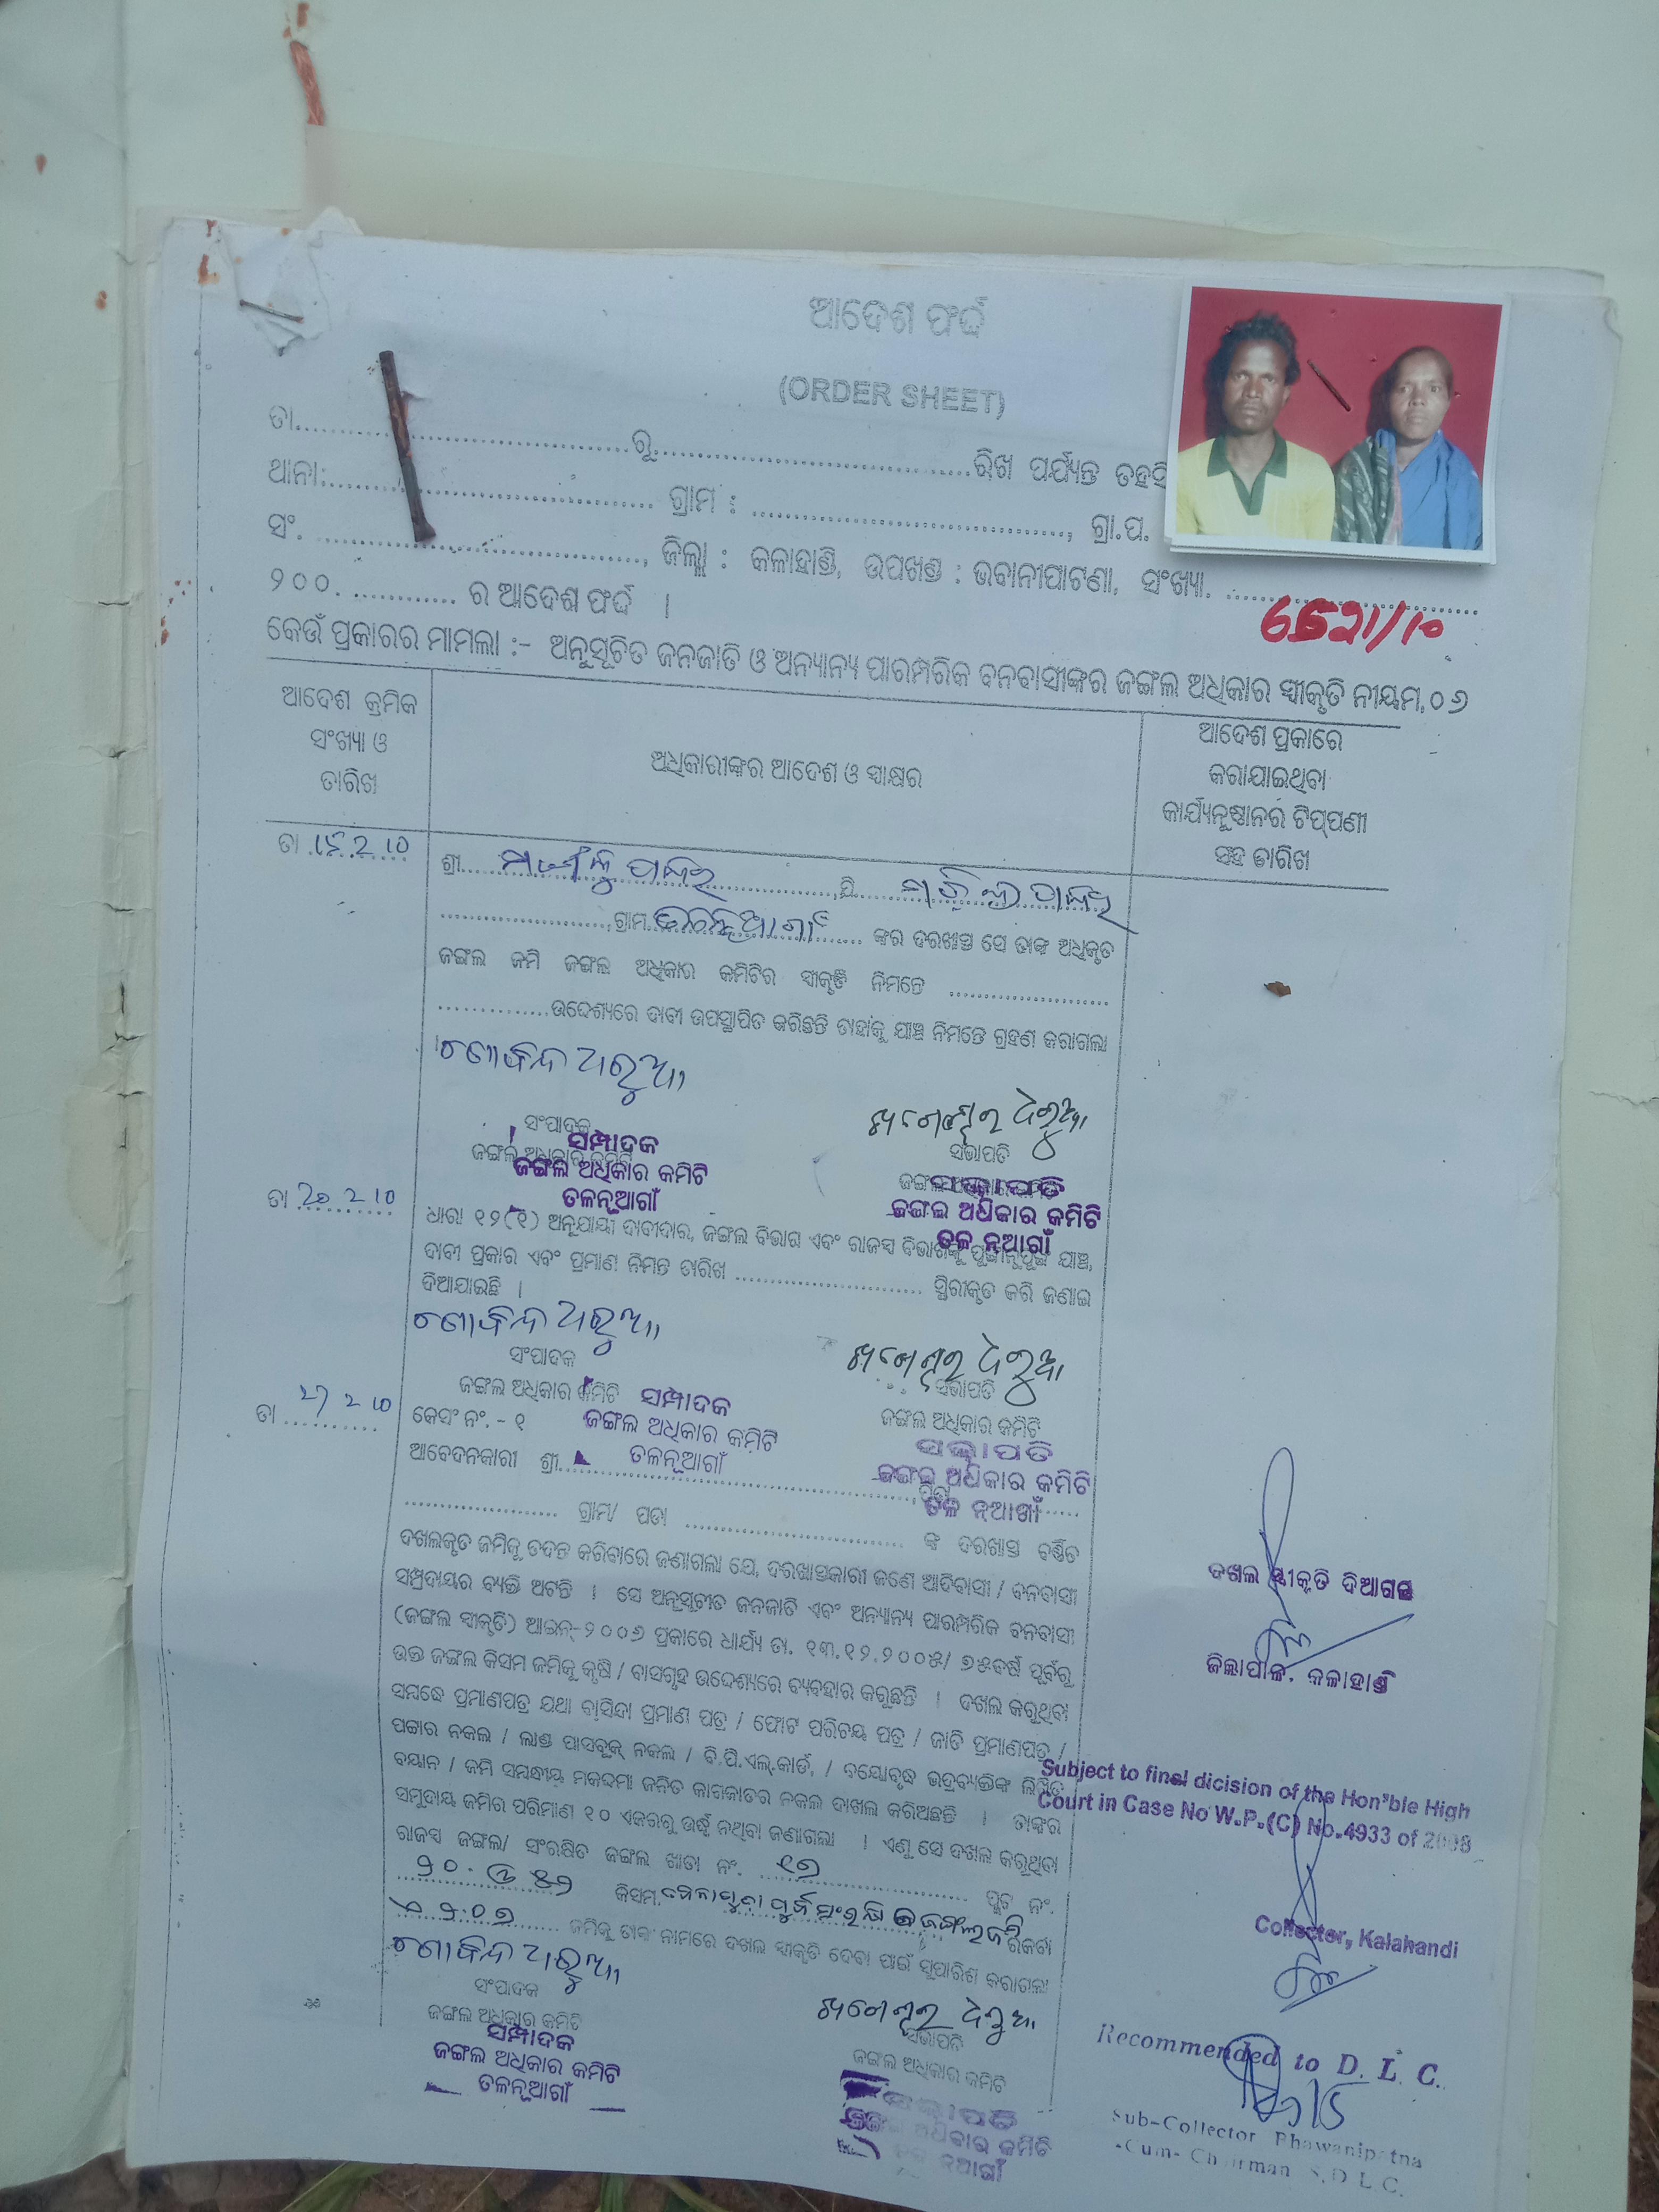 ଆଦେଶ ଫର୍ଦ୍ଦ
(ORDER SHEET)
ତା.................ରୁ.................ରିଖ ପର୍ଯ୍ୟନ୍ତ ତହସି
ଥାନା:................. ଗ୍ରାମ : ................., ଗ୍ରା.ପ.
ସଂ. ................., ଜିଲ୍ଲା : କଳାହାଣ୍ଡି, ଉପଖଣ୍ଡ : ଭବାନୀପାଟଣା, ସଂଖ୍ୟା. .................
୨୦୦. ............ ର ଆଦେଶ ଫର୍ଦ୍ଦ ।
/10
କେଉଁ ପ୍ରକାରର ମାମଲା :- ଅନୁସୂଚିତ ଜନଜାତି ଓ ଅନ୍ୟାନ୍ୟ ପାରମ୍ପରିକ ବନବାସୀଙ୍କର ଜଙ୍ଗଲ ଅଧିକାର ସ୍ୱୀକୃତି ନୀୟମ,୦୬
ଆଦେଶ କ୍ରମିକ
ସଂଖ୍ୟା ଓ
ତାରିଖ
ଅଧିକାରୀଙ୍କର ଆଦେଶ ଓ ସ୍ୱାକ୍ଷର
ଆଦେଶ ପ୍ରକାରେ
କରାଯାଇଥିବା
କାର୍ଯ୍ୟାନୁଷ୍ଠାନର ଟିପ୍ପଣୀ
ସହ ତାରିଖ
ତା 15 2 10
ଶ୍ରୀ
ଗ୍ରାମ ଙ୍କର ଦରଖାସ୍ତ ସେ ତାଙ୍କ ଅଧିକୃତ
ଜଙ୍ଗଲ ଜମି ଜଙ୍ଗଲ ଅଧିକାର କମିଟିର ସ୍ୱୀକୃତି ନିମନ୍ତେ .................
............ଉଦ୍ଦେଶ୍ୟରେ ଦାବୀ ଉପସ୍ଥାପିତ କରିଛନ୍ତି ତାହାକୁ ଯାଞ୍ଚ ନିମନ୍ତେ ଗ୍ରହଣ କରାଗଲା
।
ଗୋବିନ୍ଦ ଧରୁଆ
ଖଗେଶ୍ୱର ଧରୁଆ
ସଂପାଦକ
ଜଙ୍ଗଲ ଅଧିକାର କମିଟି
ସମ୍ପାଦକ
ଜଙ୍ଗଲ ଅଧିକାର କମିଟି
ତଳନୂଆଗାଁ
ସଭାପତି
ଜଙ୍ଗଲ ଅଧିକାର କମିଟି
ସଭାପତି
ଜଙ୍ଗଲ ଅଧିକାର କମିଟି
ତଳ ନୂଆଗାଁ
ତା 20 2 10
ଧାରା ୧୨(୧) ଅନୁଯାୟୀ ଦାବୀଦାର, ଜଙ୍ଗଲ ବିଭାଗ ଏବଂ ରାଜସ୍ୱ ବିଭାଗକୁ ଯାଞ୍ଚ,
ଦାବୀ ପ୍ରକାର ଏବଂ ପ୍ରମାଣ ନିମନ୍ତେ ତାରିଖ ................. ସ୍ଥିରୀକୃତ କରି ଜଣାଇ
ଦିଆଯାଇଛି ।
ଗୋବିନ୍ଦ ଧରୁଆ
ଖଗେଶ୍ୱର ଧରୁଆ
ସଂପାଦକ
ଜଙ୍ଗଲ ଅଧିକାର କମିଟି
ସମ୍ପାଦକ
ଜଙ୍ଗଲ ଅଧିକାର କମିଟି
ତଳନୂଆଗାଁ
ସଭାପତି
ଜଙ୍ଗଲ ଅଧିକାର କମିଟି
ସଭାପତି
ଜଙ୍ଗଲ ଅଧିକାର କମିଟି
ତଳ ନୂଆଗାଁ
ତା 27 2 10
କେସଂ ନଂ.- ୧
ଆବେଦନକାରୀ ଶ୍ରୀ.................
................. ଗ୍ରାମ/ ପଡା ................. ଙ୍କ ଦରଖାସ୍ତ ବର୍ଣ୍ଣିତ
ଦଖଲକୃତ ଜମିକୁ ତଦନ୍ତ କରିବାରେ ଜଣାଗଲା ଯେ, ଦରଖାସ୍ତକାରୀ ଜଣେ ଆଦିବାସୀ / ବନବାସୀ
ସମ୍ପ୍ରଦାୟର ବ୍ୟକ୍ତି ଅଟନ୍ତି । ସେ ଅନୁସୂଚୀତ ଜନଜାତି ଏବଂ ଅନ୍ୟାନ୍ୟ ପାରମ୍ପରିକ ବନବାସୀ
(ଜଙ୍ଗଲ ସ୍ୱୀକୃତି) ଆଇନ୍-୨୦୦୬ ପ୍ରକାରେ ଧାର୍ଯ୍ୟ ତା. ୧୩.୧୨.୨୦୦୫/ ୭୫ବର୍ଷ ପୂର୍ବରୁ
ଉକ୍ତ ଜଙ୍ଗଲ କିସମ ଜମିକୁ କୃଷି / ବାସଗୃହ ଉଦ୍ଦେଶ୍ୟରେ ବ୍ୟବହାର କରୁଛନ୍ତି । ଦଖଲ କରୁଥିବା
ସମ୍ବନ୍ଧେ ପ୍ରମାଣପତ୍ର ଯଥା ବାସିନ୍ଦା ପ୍ରମାଣ ପତ୍ର / ଫୋଟ ପରିଚୟ ପତ୍ର / ଜାତି ପ୍ରମାଣପତ୍ର /
ପଟ୍ଟାର ନକଲ / ଲାଣ୍ଡ ପାସବୁକ୍ ନକଲ / ବି.ପି.ଏଲ୍.କାର୍ଡ, / ବୟୋବୃଦ୍ଧ ଭଦ୍ରବ୍ୟକ୍ତିଙ୍କ ଲିଖିତ
ବୟାନ / ଜମି ସମ୍ବନ୍ଧୀୟ ମକଦ୍ଦମା ଜନିତ କାଗଜାତର ନକଲ ଦାଖଲ କରିଅଛନ୍ତି । ତାଙ୍କର
ସମୁଦାୟ ଜମିର ପରିମାଣ ୧୦ ଏକରରୁ ଉର୍ଦ୍ଧ୍ୱ ନଥିବା ଜଣାଗଲା । ଏଣୁ ସେ ଦଖଲ କରୁଥିବା
ରାଜସ୍ୱ ଜଙ୍ଗଲ/ ସଂରକ୍ଷିତ ଜଙ୍ଗଲ ଖାତା ନଂ. ୧୭ ପ୍ଲଟ ନଂ.
କିସମ ରକବା
ଜମିକୁ ତାଙ୍କ ନାମରେ ଦଖଲ ସ୍ୱୀକୃତି ଦେବା ପାଇଁ ସୁପାରିଶ କରାଗଲା
ଗୋବିନ୍ଦ ଧରୁଆ
ଖଗେଶ୍ୱର ଧରୁଆ
ସଂପାଦକ
ଜଙ୍ଗଲ ଅଧିକାର କମିଟି
ସମ୍ପାଦକ
ଜଙ୍ଗଲ ଅଧିକାର କମିଟି
ତଳନୂଆଗାଁ
ସଭାପତି
ଜଙ୍ଗଲ ଅଧିକାର କମିଟି
ସଭାପତି
ଜଙ୍ଗଲ ଅଧିକାର କମିଟି
ନୂଆଗାଁ
ଦଖଲ ସ୍ୱୀକୃତି ଦିଆଗଲା
ଜିଲ୍ଲାପାଳ, କଳାହାଣ୍ଡି
Subject to final dicision of the Hon'ble High
Court in Case No W.P.(C) No.4933 of 2008
Collector, Kalahandi
Recommended to D. L. C.
Sub-Collector Bhawanipatna
-Cum- Chairman S.D.L.C.